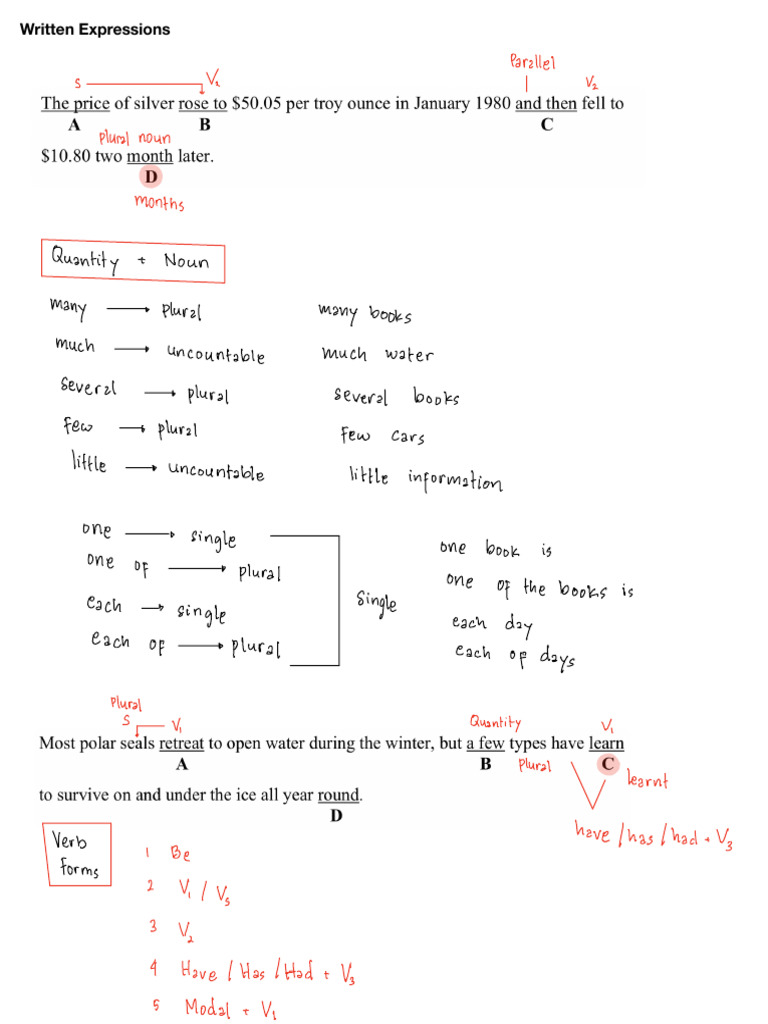 Written Expressions
Parallel
S V₁ V₂
The price of silver rose to $50.05 per troy ounce in January 1980 and then fell to
A B C
plural noun
$10.80 two month later.
D
months
Quantity + Noun
many → plural many books
much → uncountable much water
several → plural several books
few → plural few cars
little → uncountable little information
one → single one book is
one of → plural one of the books is
single
each → single each day
each of → plural each of days
Plural
S V₁ Quantity V₁
Most polar seals retreat to open water during the winter, but a few types have learn
A B Plural C
learnt
to survive on and under the ice all year round.
D
have / has / had + V₃
Verb forms
1 Be
2 V₁ / Vs
3 V₂
4 Have / Has / Had + V₃
5 Modal + V₁